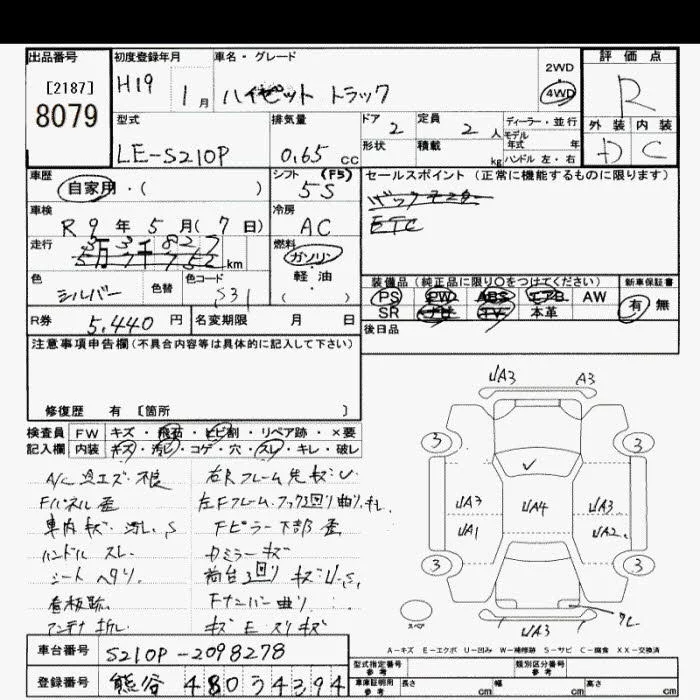 出品番号
[2187]
8079
初度登録年月
H19 1月
車名・グレード
ハイゼット トラック
2WD
4WD
評価点
R
外装 内装
D C
型式
LE-S210P
排気量
0.65 cc
ドア 2
定員 2 人
形状
積載 kg
ディーラー・並行
モデル年式 年
ハンドル 左・右
車歴
自家用・( )
シフト (F5)
5S
セールスポイント(正常に機能するものに限ります)
バックモニター
ETC
車検
R 9 年 5 月( 7 日)
冷房
AC
走行
万 千
km
燃料
ガソリン
軽油
( )
色
シルバー
色替
色コード
S31
装備品(純正品に限り○をつけてください)
PS PW ABS エアB AW
SR ナビ TV 本革
新車保証書
有 無
R券 5,440 円
名変期限 月 日
後日品
注意事項申告欄(不具合内容等は具体的に記入して下さい)
修復歴 有 [箇所 ]
検査員記入欄
FW キズ・飛石・ヒビ割・リペア跡・×要
内装 キズ・汚レ・コゲ・穴・スレ・キレ・破レ
A/C 不良
Fパネル 歪
車内キズ・汚レ、S
ハンドル スレ
シート ヘタリ
看板跡
アンテナ 折レ
右Rフレーム先 キズ・U
左Fフレーム・フック回り曲り、キレ
Fピラー下部 歪
カミラー キズ
荷台回り キズ・U、S
Fナンバー曲り
キズ E スリキズ
UA3 A3
3 3
UA3 UA4 UA3
UA1 UA2
3 3
スペア
UA3
A-キズ E-エクボ U-凹み W-補修跡 S-サビ C-腐食 XX-交換済
車台番号
S210P-2098278
登録番号
熊谷 480 う 4394
型式指定番号
参考
類別区分番号
参考
車庫証明用
参考
長さ cm
幅 cm
高さ cm